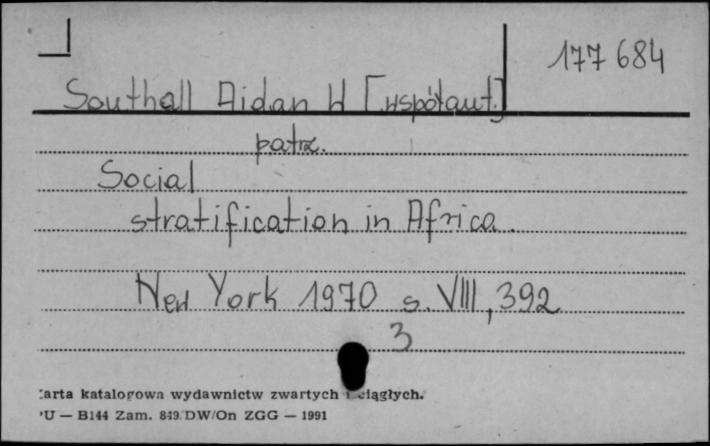 177 684
Southall Aidan W [współaut.]
patrz.
Social
stratification in Africa.
New York 1970 s. VIII, 392
3
arta katalogowa wydawnictw zwartych i ciągłych.
U — B144 Zam. 849/DW/On ZGG — 1991